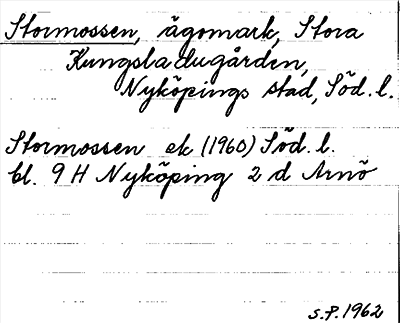 Stormossen, ägomark, Stora
Kungsladugården,
Nyköpings stad, Söd. l.
Stormossen ek (1960) Söd. l.
bl. 9 H Nyköping 2 d Arnö
S.P. 1962